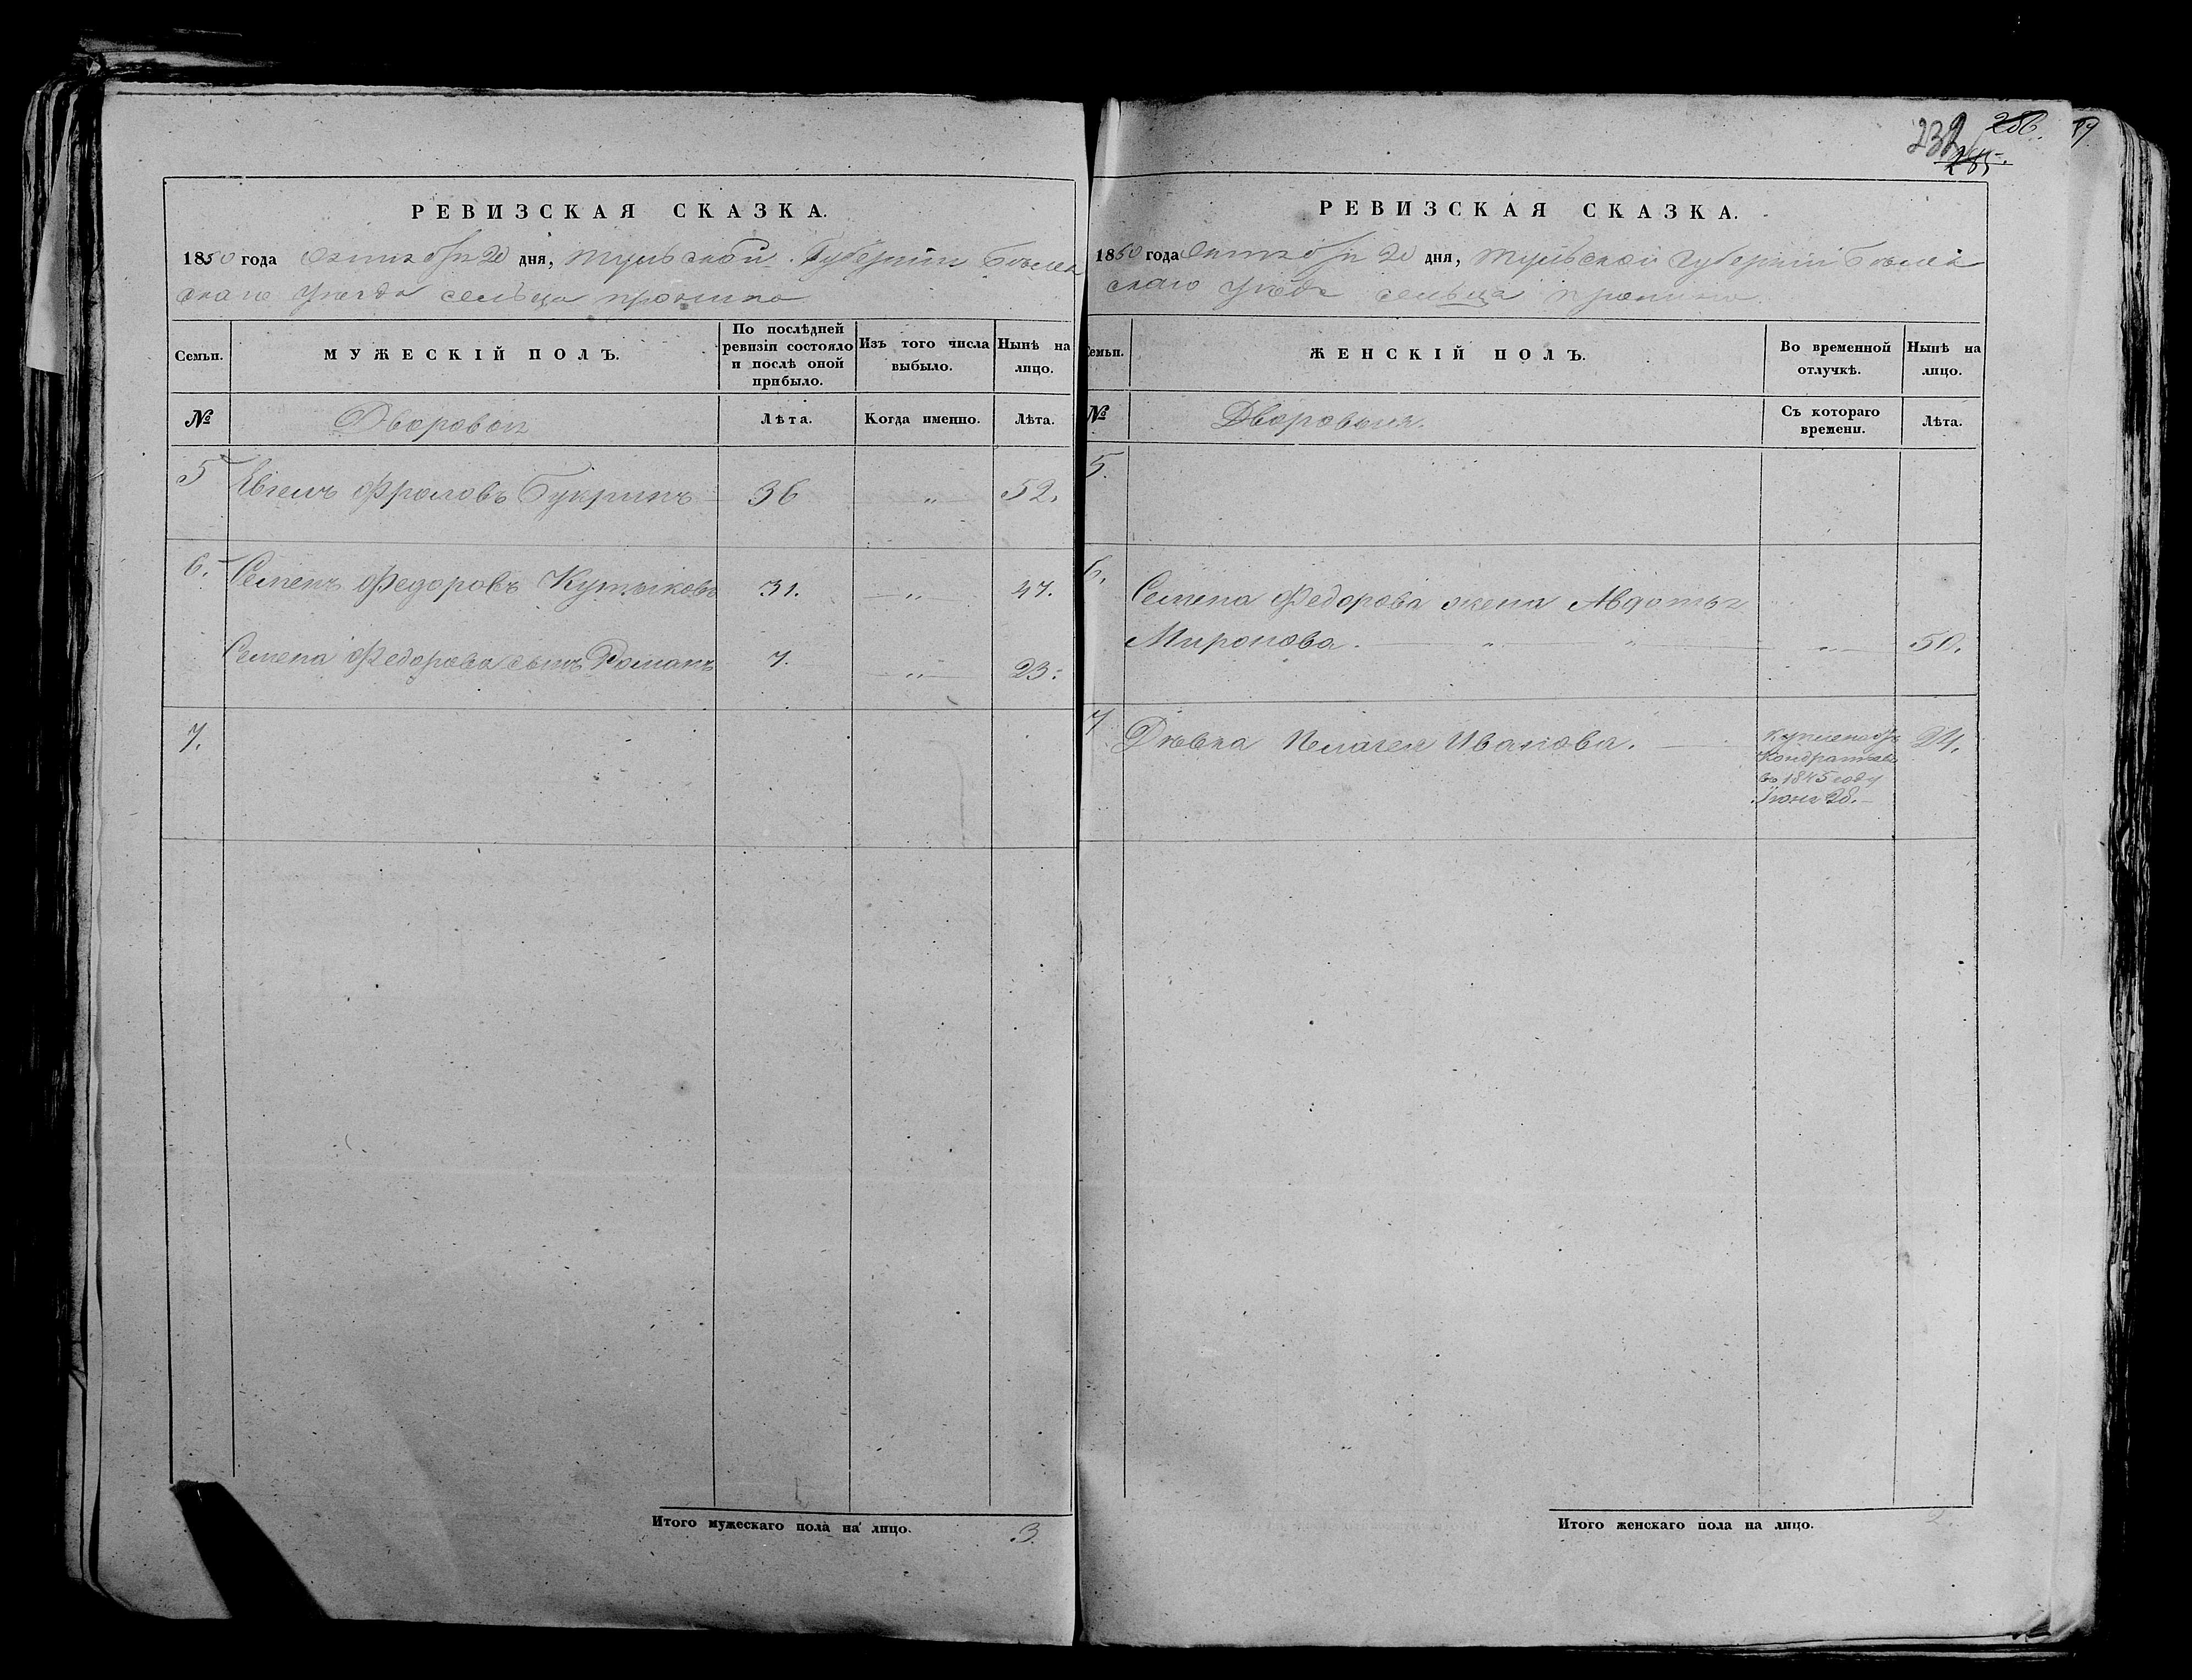 232 286. 89
285
РЕВИЗСКАЯ СКАЗКА.
1850 года Октября 20 дня, Тульской Губернии Бѣлев
скаго уезда сельца пронино
Семьи. МУЖЕСКІЙ ПОЛЪ. По послѣдней ревизіи состояло и послѣ оной прибыло. Изъ того числа выбыло. Нынѣ на лицо.
№ Дворовои Лѣта. Когда именно. Лѣта.
5 Фроловъ Букринъ 36 „ 52.
6. Семенъ Федоровъ 31. „ 47.
Семена Федорова сынъ Романъ 7. „ 23.
7.
Итого мужескаго пола на лицо. 3.
РЕВИЗСКАЯ СКАЗКА.
1850 года Октября 20 дня, Тульской Губерніи Бѣлев
скаго уезда сельца пронино.
Семьи. ЖЕНСКІЙ ПОЛЪ. Во временной отлучкѣ. Нынѣ на лицо.
№ Дворовыя. Съ котораго времени. Лѣта.
5.
6. Семена Федорова жена Авдотья
Миронова. „ „ „ 50.
7 Дѣвка Пелагея Иванова. 24.
въ 1845 году
Июня 28.
Итого женскаго пола на лицо. 2.